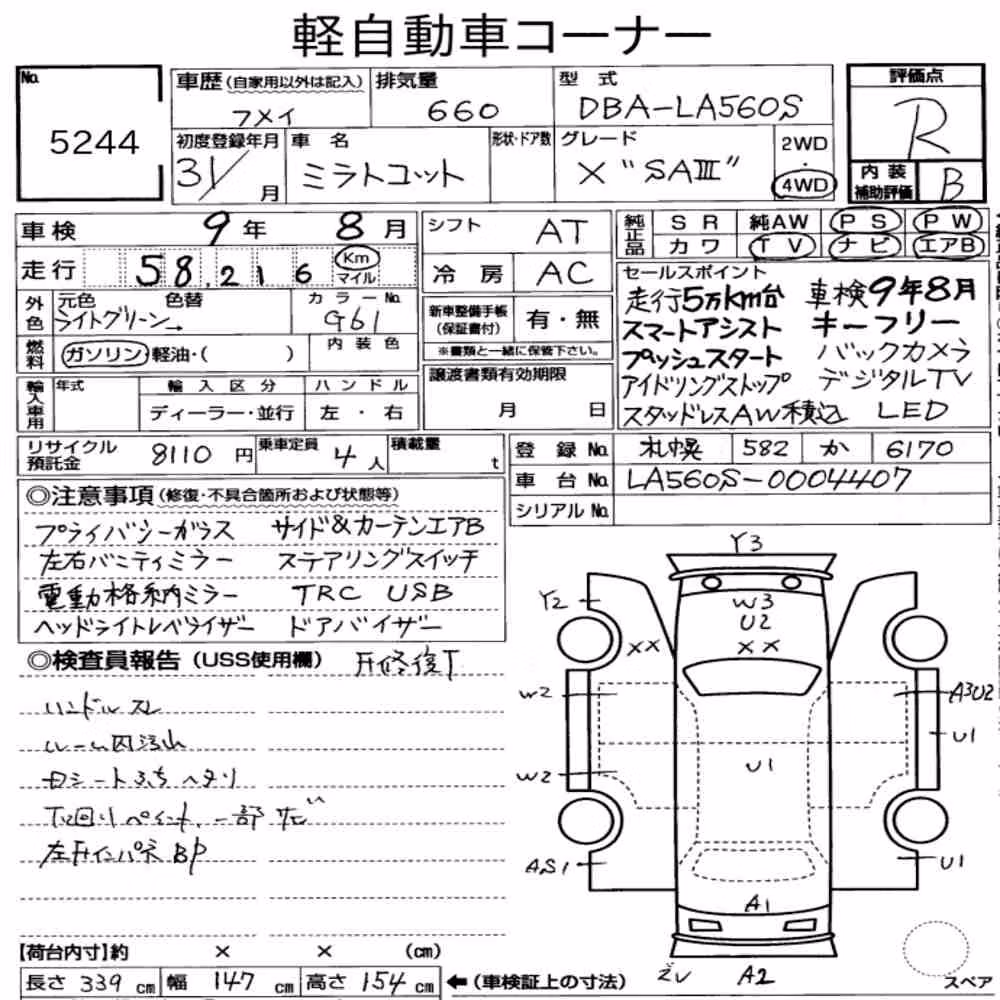 軽自動車コーナー
No. 5244
車歴(自家用以外は記入)
排気量 660
型式 DBA-LA560S
評価点 R
初度登録年月 31/ 月
車名 ミラトコット
形状・ドア数
グレード X "SAⅢ"
2WD ・ 4WD
内装補助評価 B
車検 9年 8月
走行 58,216 Km マイル
シフト AT
冷房 AC
純正品 SR 純AW PS PW
カワ TV ナビ エアB
外色 元色 色替 ライトグリーン→
カラーNo. G61
燃料 ガソリン・軽油・( )
内装色
新車整備手帳(保証書付) 有・無
※書類と一緒に保管下さい。
セールスポイント
走行5万km台 車検9年8月
スマートアシスト キーフリー
プッシュスタート バックカメラ
アイドリングストップ デジタルTV
スタッドレスAW積込 LED
輸入車用 年式 輸入区分 ハンドル
ディーラー・並行 左・右
譲渡書類有効期限
月 日
リサイクル預託金 8110円
乗車定員 4人
積載量 t
登録No. 札幌 582 か 6170
車台No. LA560S-0004407
シリアルNo.
◎注意事項(修復・不具合箇所および状態等)
プライバシーガラス サイド&カーテンエアB
左右バニティミラー ステアリングスイッチ
電動格納ミラー TRC USB
ヘッドライトレベライザー ドアバイザー
◎検査員報告(USS使用欄)
ハンドルスレ
ルーム内汚れ
下回りペイント、一部サビ
Y3
Y2
W3
U2
XX
XX
W2
A3U2
U1
U1
W2
AS1
U1
A1
A2
スペア
【荷台内寸】約 × × (cm)
長さ 339cm 幅 147cm 高さ 154cm ←(車検証上の寸法)